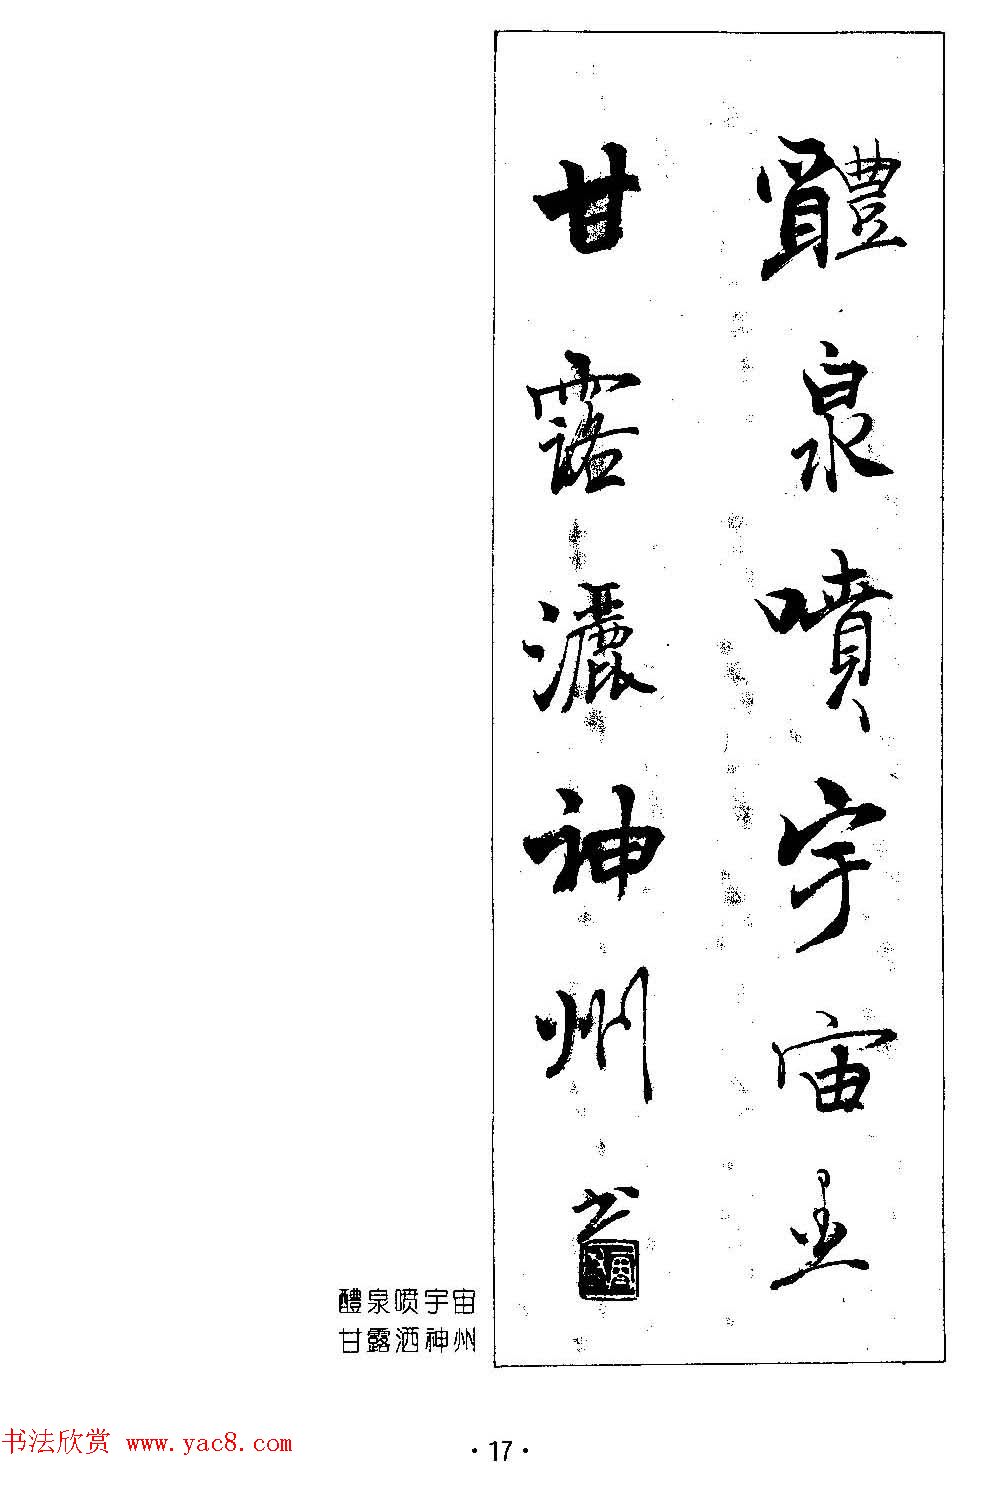 醴泉噴宇宙
甘露灑神州
醴泉喷宇宙
甘露洒神州
书法欣赏 www.yac8.com
·17·